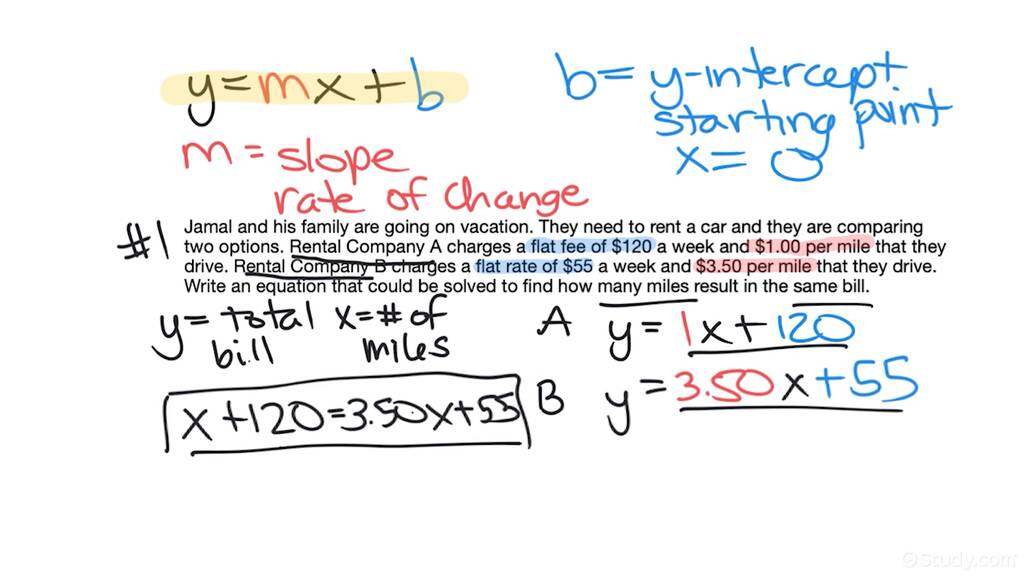 y=mx+b
b= y-intercept
starting point
x= 0
m = slope
rate of change
#1
Jamal and his family are going on vacation. They need to rent a car and they are comparing
two options. Rental Company A charges a flat fee of $120 a week and $1.00 per mile that they
drive. Rental Company B charges a flat rate of $55 a week and $3.50 per mile that they drive.
Write an equation that could be solved to find how many miles result in the same bill.
y= total x=# of
bill miles
A y= 1x+120
B y=3.50x+55
x+120=3.50x+55
Study.com